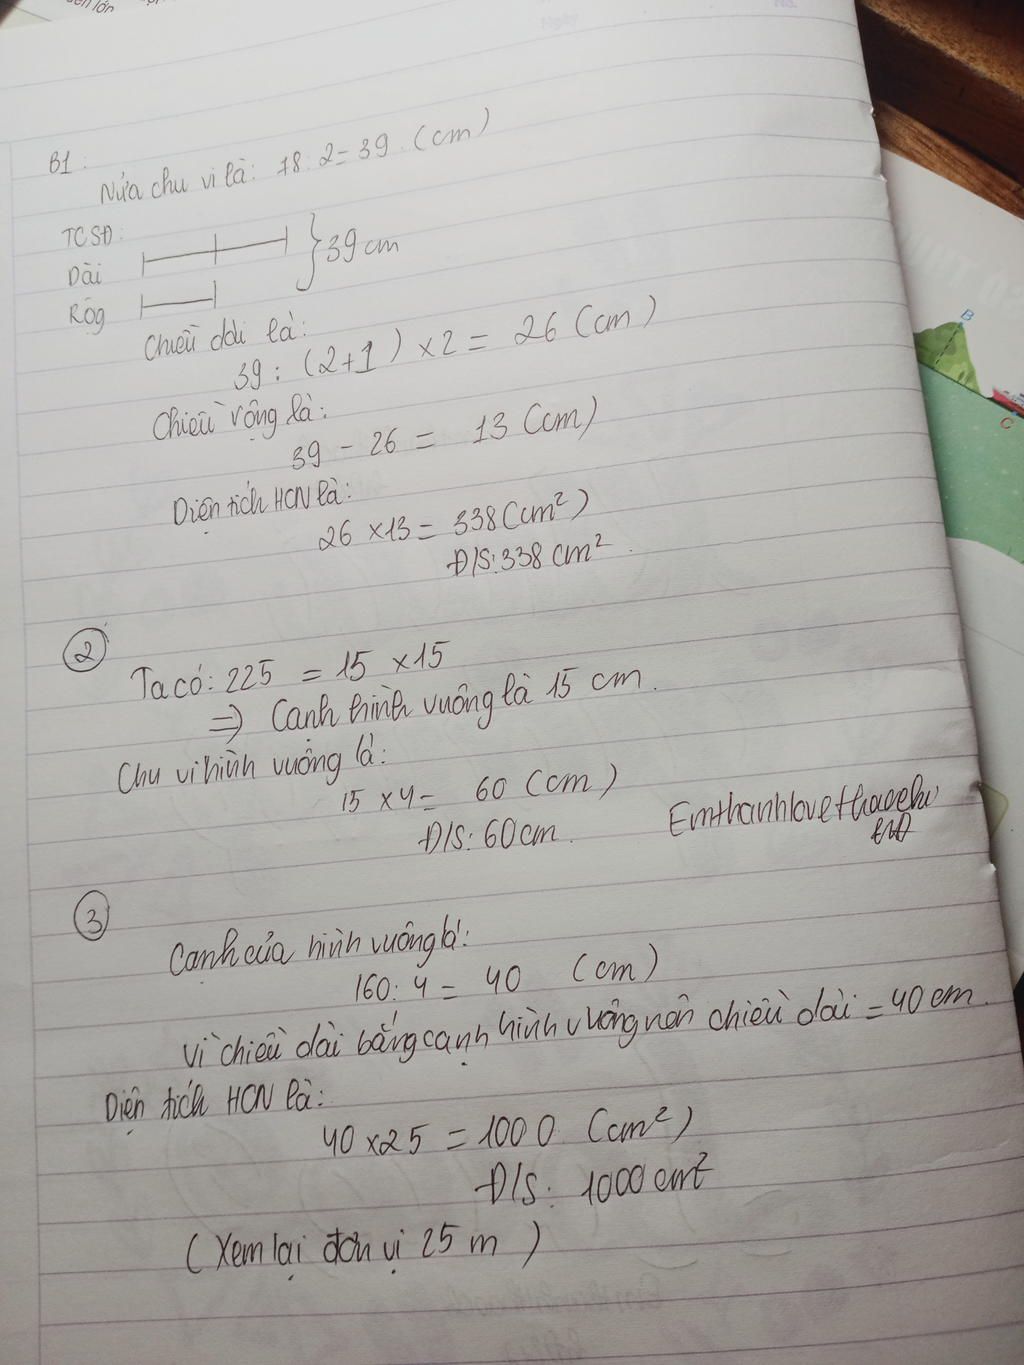 B1:
Nửa chu vi là: 78 : 2 = 39 (cm)
TCSĐ:
Dài
39 cm
Rộg
Chiều dài là:
39 : (2+1) × 2 = 26 (cm)
Chiều rộng là:
39 - 26 = 13 (cm)
Diện tích HCN là:
26 × 13 = 338 (cm²)
Đ/S: 338 cm².
2
Ta có: 225 = 15 × 15
⇒ Cạnh hình vuông là 15 cm.
Chu vi hình vuông là:
15 × 4 = 60 (cm)
Đ/S: 60 cm.
3
Cạnh của hình vuông là:
160 : 4 = 40 (cm)
Vì chiều dài bằng cạnh hình vuông nên chiều dài = 40 cm.
Diện tích HCN là:
40 × 25 = 1000 (cm²)
Đ/S: 1000 cm²
(Xem lại đơn vị 25 m)
B
C